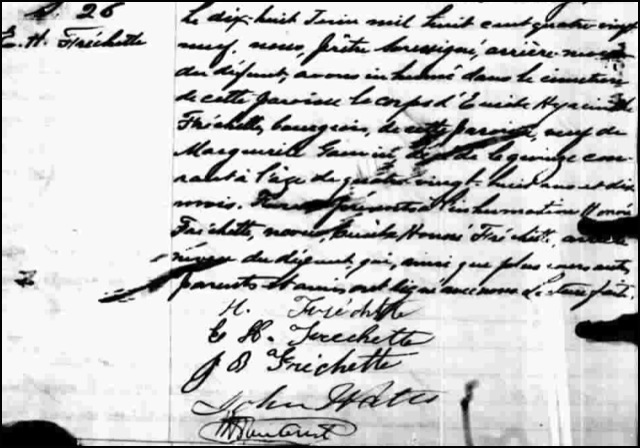 S. 26
E. H. Fréchette
Le dix-huit Juin mil huit cent quatre vingt
neuf, nous, prêtre soussigné, arrière-neveu
du défunt, avons inhumé dans le cimetière
de cette paroisse le corps d'Émile Hyacinthe
Fréchette, bourgeois, de cette paroisse, veuf de
Marguerite décédé le quinze cou-
rant à l'âge de quatre vingt-huit ans et dix
mois. Furent présents à l'inhumation Honoré
Fréchette, neveu, Émile Honoré Fréchette, arrière
neveu du défunt, qui, ainsi que plusieurs autres
parents et amis ont signé avec nous. Lecture faite.
H. Fréchette
E H. Frechette
J B Fréchette
John